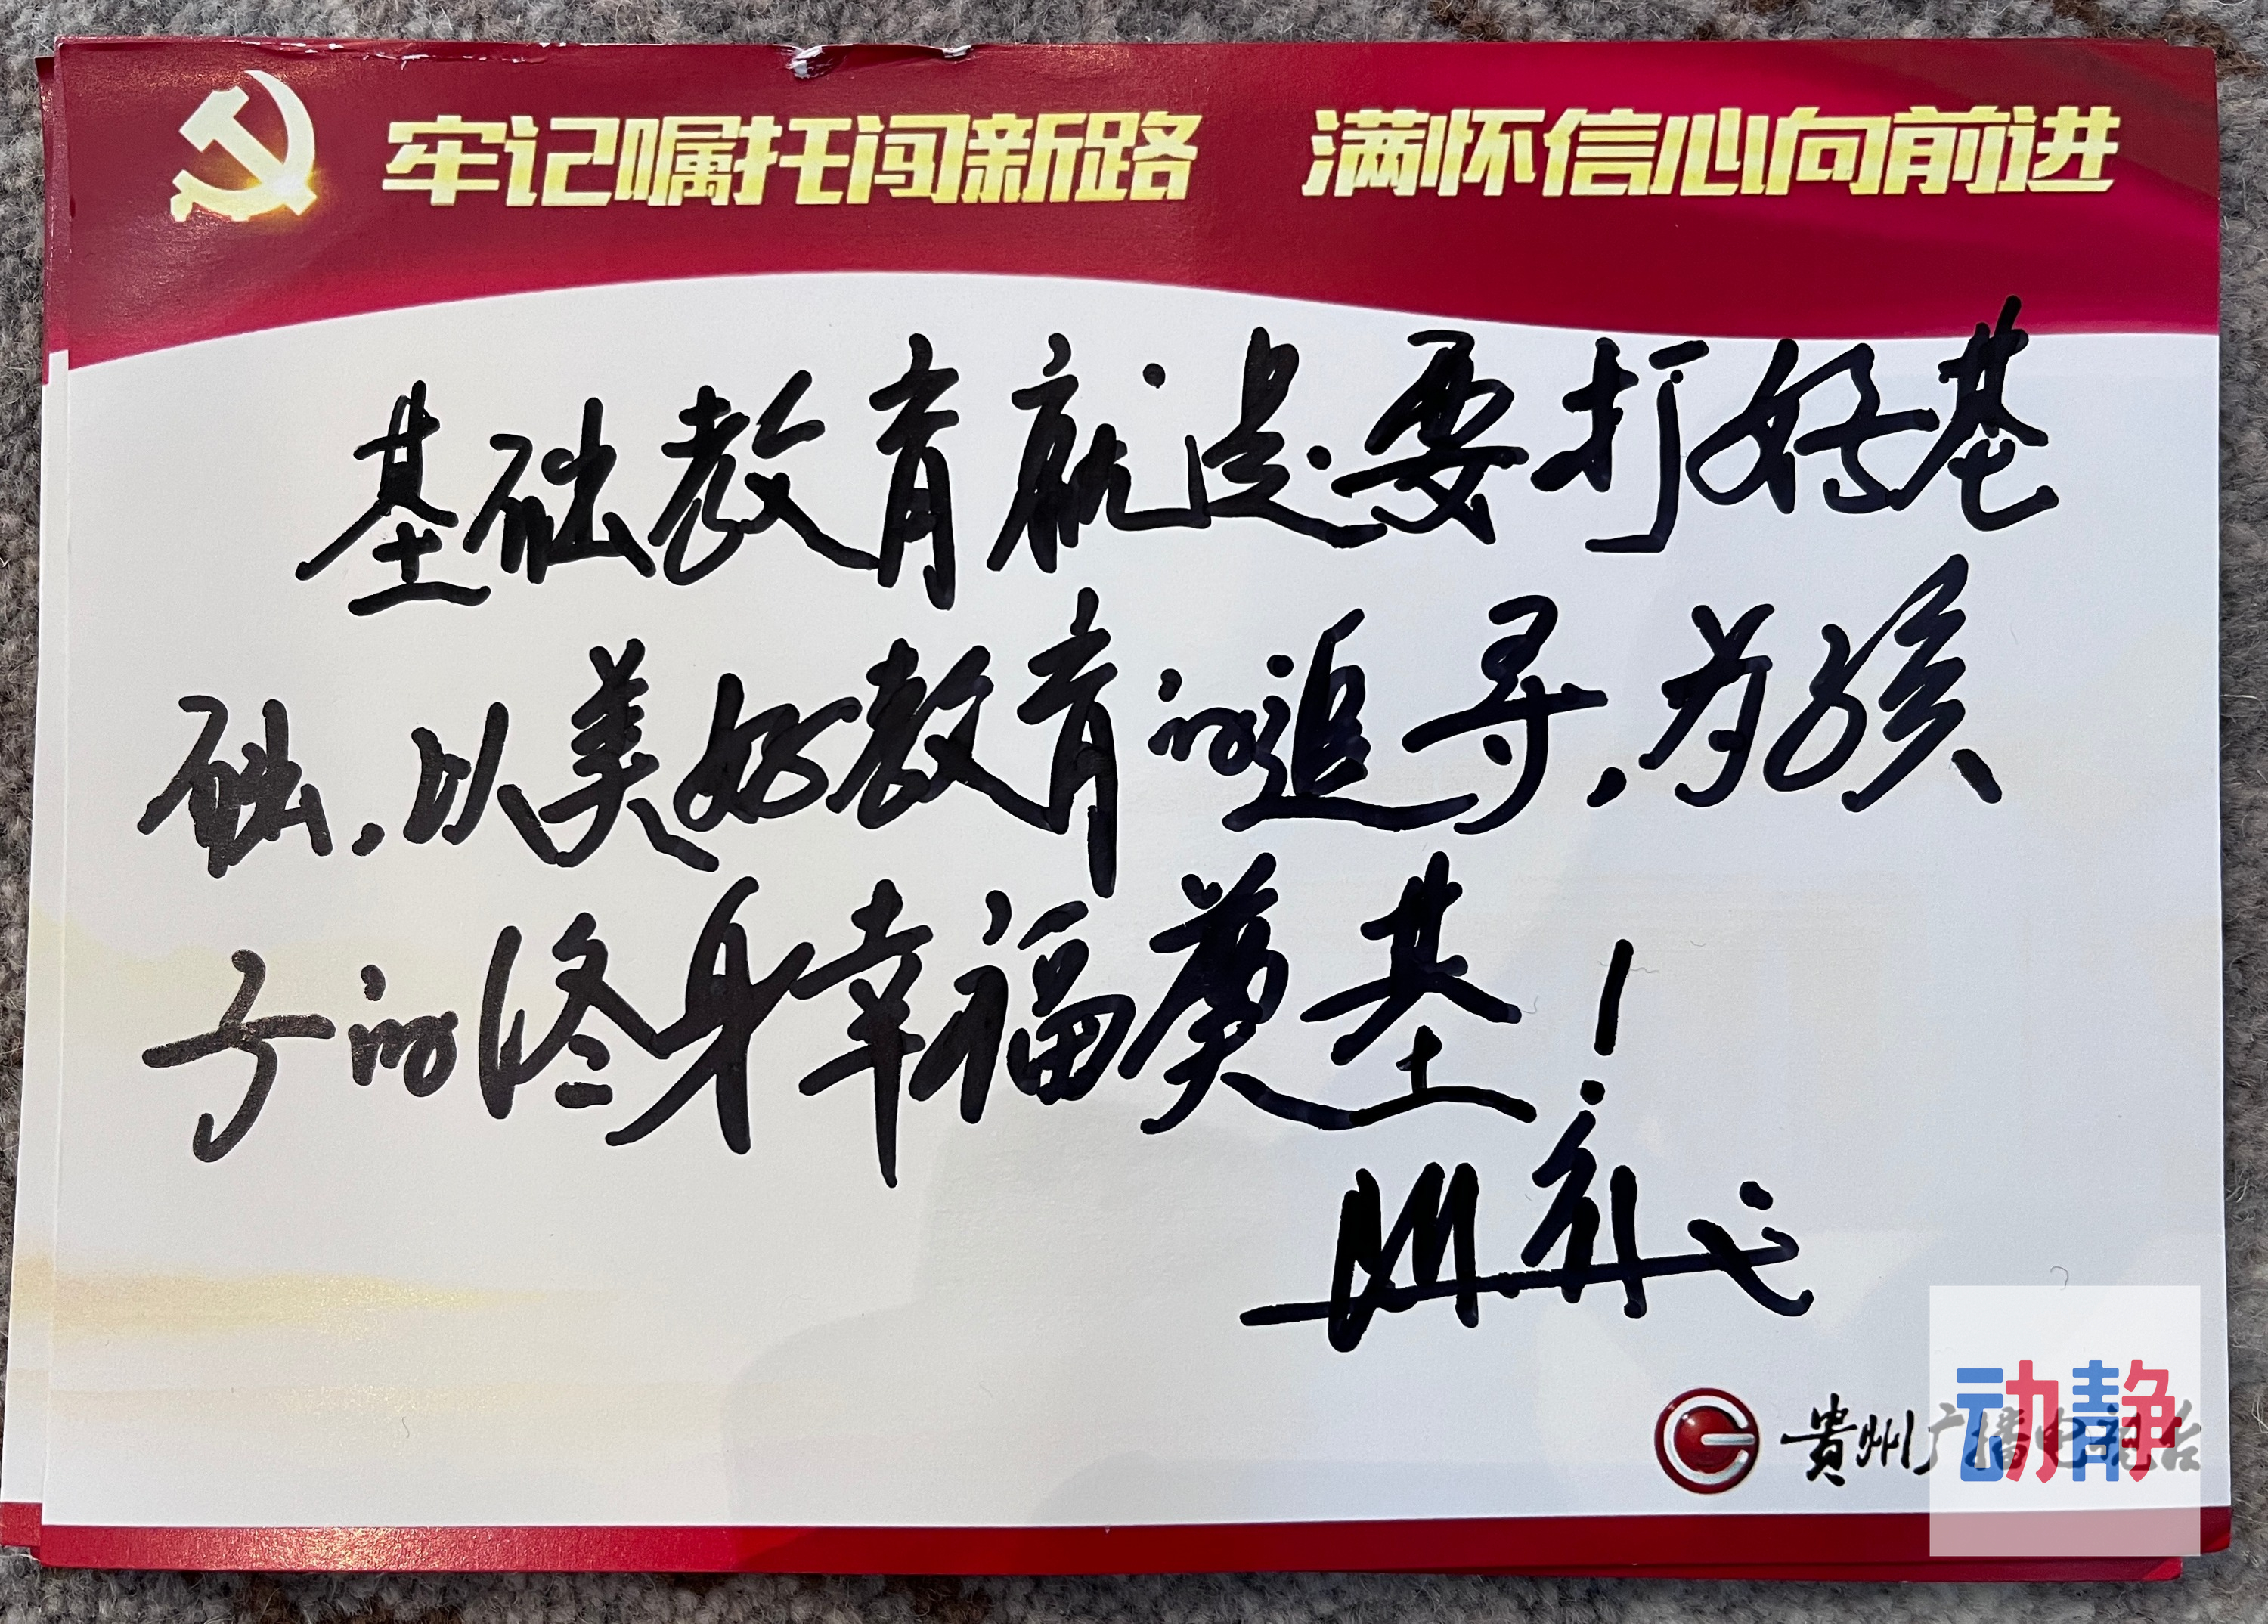 牢记嘱托闯新路 满怀信心向前进
基础教育就是要打好基
础,以美好教育的追寻,为孩
子的终身幸福奠基!
贵州广播电视台
动静